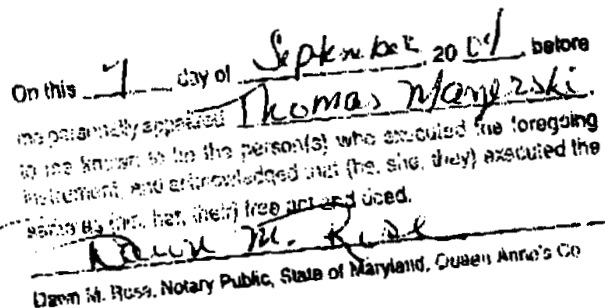 On this 9 day of September 2009 before
me personally appeared Thomas Mayerski.
to me known to be the person(s) who executed the foregoing
instrument, and acknowledged that (he, she, they) executed the
same as (his, her, their) free act and deed.
Dawn M. Rose
Dawn M. Rose, Notary Public, State of Maryland, Queen Anne's Co